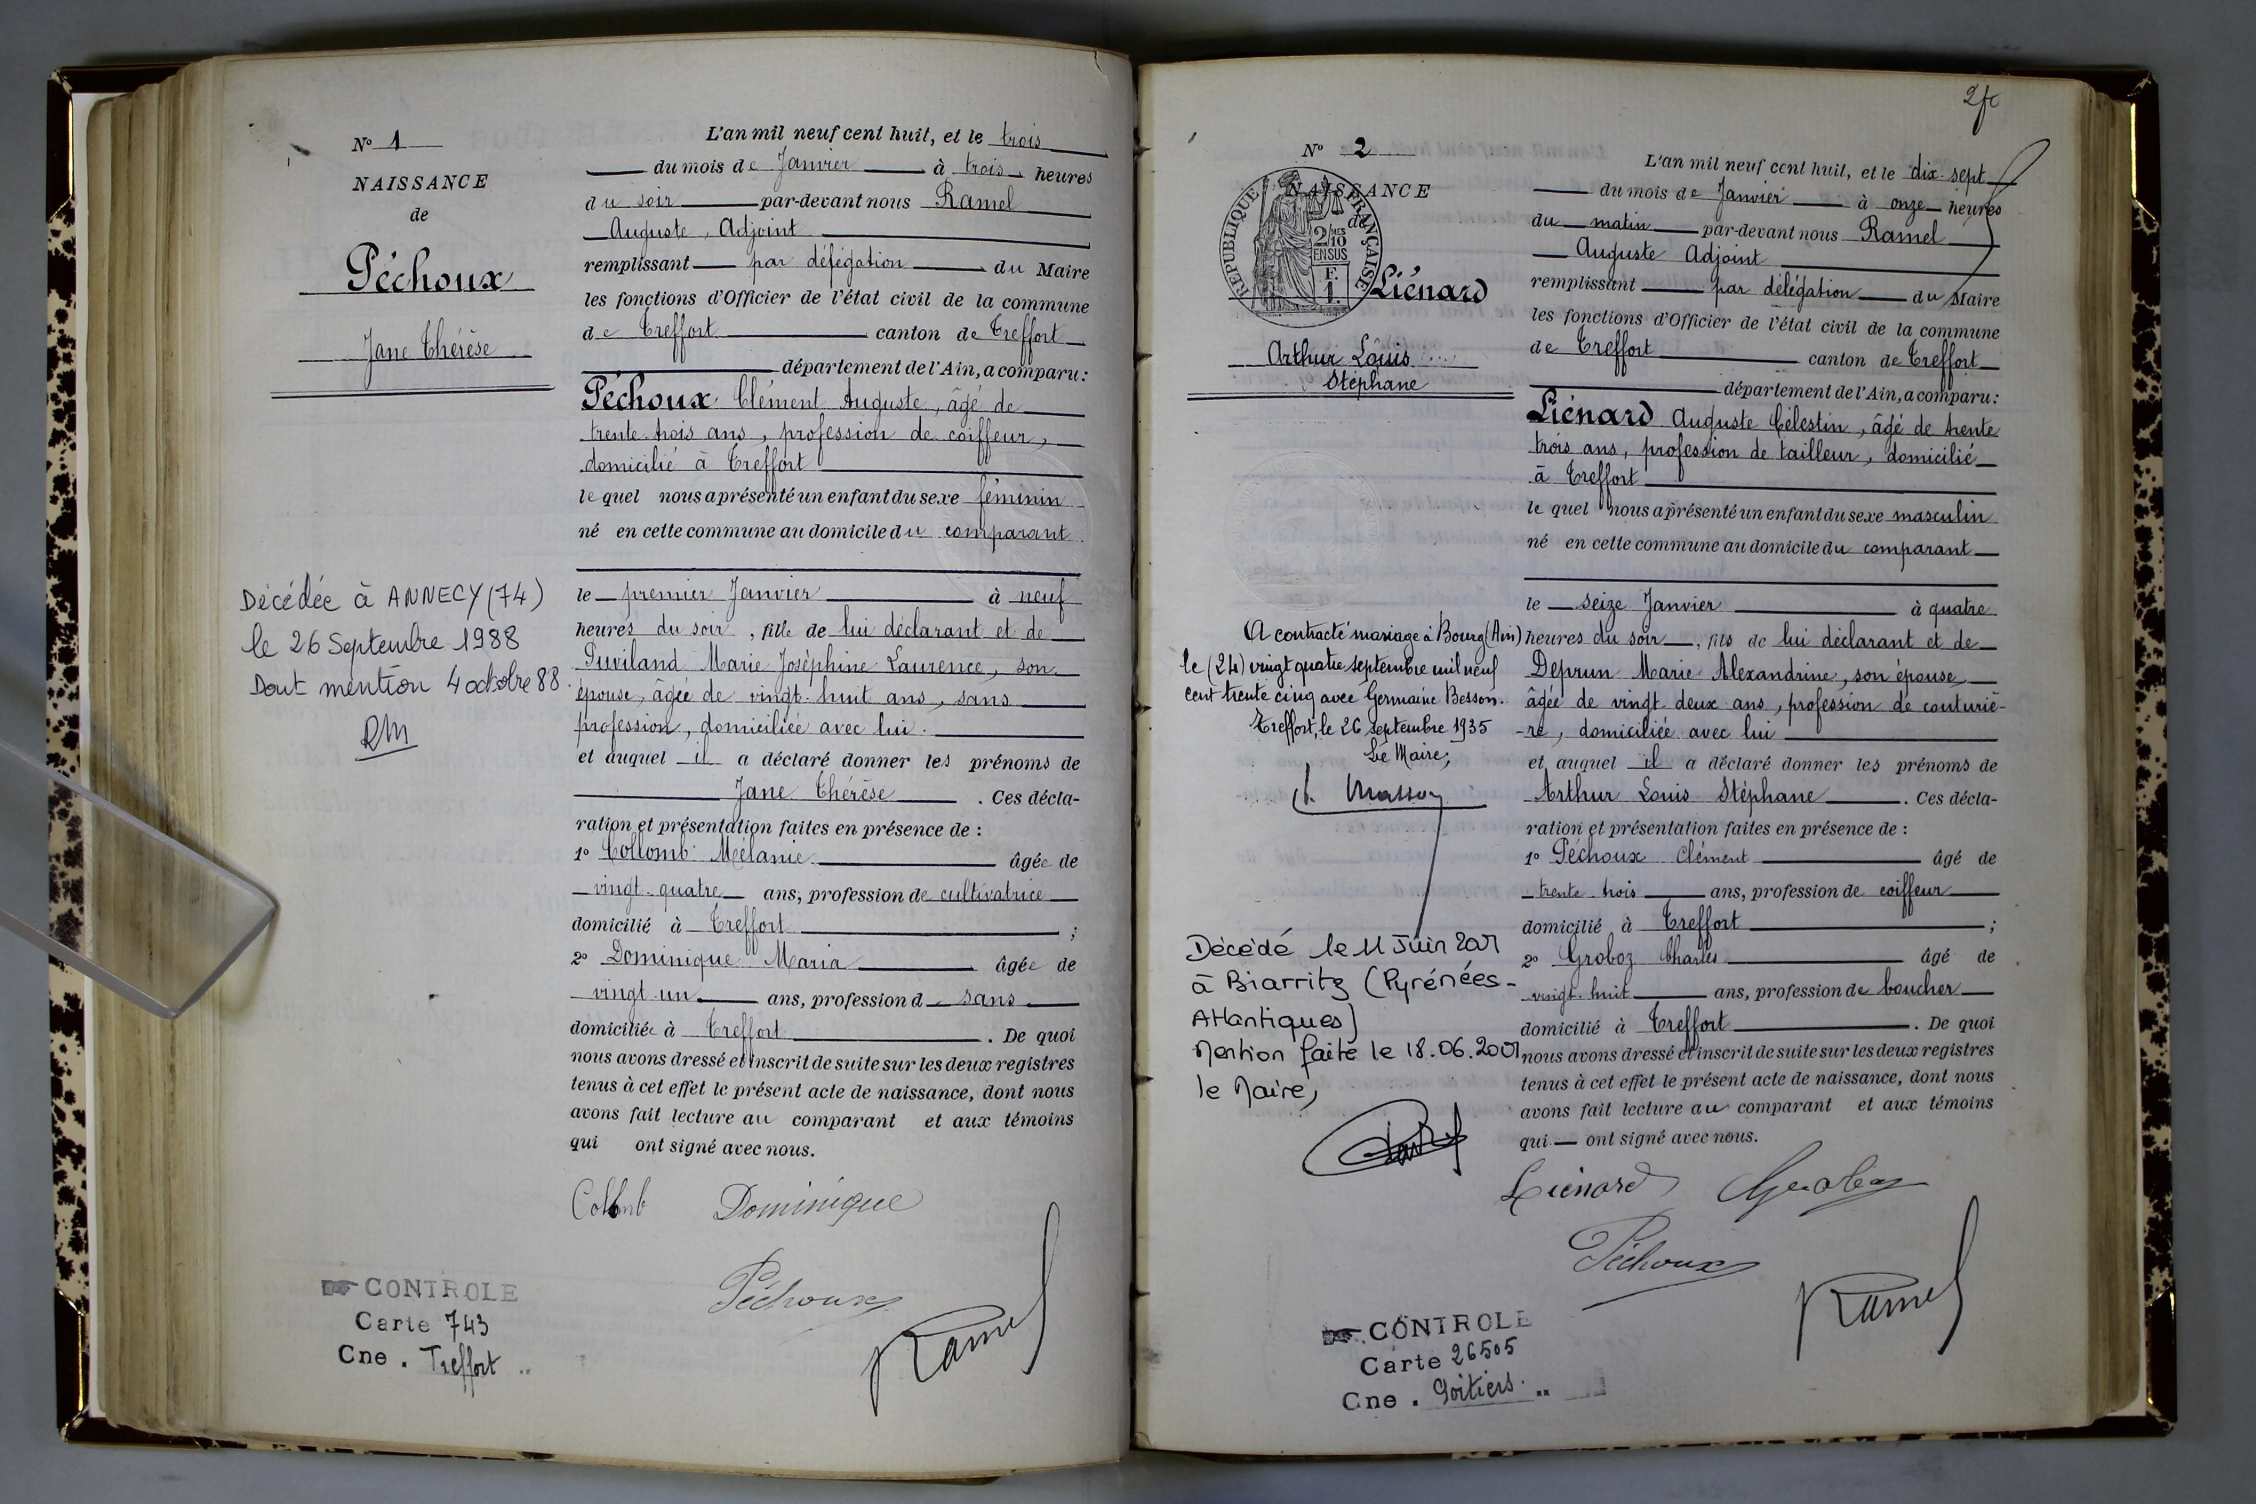 N° 1
NAISSANCE
de
Péchoux
Jane Thérèse
Décédée à ANNECY (74)
le 26 Septembre 1988
Dont mention 4 octobre 88.
RM
CONTROLE
Carte 743
Cne. Treffort
L'an mil neuf cent huit, et le trois
du mois de Janvier à trois heures
du soir par-devant nous Ramel
Auguste, Adjoint
remplissant par délégation du Maire
les fonctions d'Officier de l'état civil de la commune
de Treffort canton de Treffort
département de l'Ain, a comparu:
Péchoux Clément Auguste, âgé de
trente trois ans, profession de coiffeur,
domicilié à Treffort
le quel nous a présenté un enfant du sexe féminin
né en cette commune au domicile du comparant
le premier Janvier à neuf
heures du soir, fille de lui déclarant et de
Puviland Marie Joséphine Laurence, son
épouse, âgée de vingt-huit ans, sans
profession, domiciliée avec lui.
et auquel il a déclaré donner les prénoms de
Jane Thérèse. Ces décla-
ration et présentation faites en présence de :
1° Collomb Mélanie âgée de
vingt-quatre ans, profession de cultivatrice
domicilié à Treffort ;
2° Dominique Maria âgée de
vingt-un ans, profession d sans
domiciliée à Treffort. De quoi
nous avons dressé et inscrit de suite sur les deux registres
tenus à cet effet le présent acte de naissance, dont nous
avons fait lecture au comparant et aux témoins
qui ont signé avec nous.
Collomb Dominique
Péchoux
Ramel
2
N° 2
NAISSANCE
de
RÉPUBLIQUE FRANÇAISE
2/10
EN SUS
F.
1.
Liénard
Arthur Louis
Stéphane
A contracté mariage à Bourg (Ain)
le (24) vingt quatre septembre mil neuf
cent trente cinq avec Germaine Besson.
Treffort, le 26 septembre 1935
Le Maire,
Décédé le 11 Juin 2001
à Biarritz (Pyrénées-
Atlantiques)
Mention faite le 18.06.2001
le Maire,
CONTROLE
Carte 26505
Cne. Poitiers.
L'an mil neuf cent huit, et le dix-sept
du mois de Janvier à onze heures
du matin par-devant nous Ramel
Auguste Adjoint
remplissant par délégation du Maire
les fonctions d'Officier de l'état civil de la commune
de Treffort canton de Treffort
département de l'Ain, a comparu:
Liénard Auguste Célestin, âgé de trente
trois ans, profession de tailleur, domicilié
à Treffort
le quel nous a présenté un enfant du sexe masculin
né en cette commune au domicile du comparant
le seize Janvier à quatre
heures du soir, fils de lui déclarant et de
Deprun Marie Alexandrine, son épouse
âgée de vingt deux ans, profession de couturiè-
-re, domiciliée avec lui
et auquel il a déclaré donner les prénoms de
Arthur Louis Stéphane. Ces décla-
ration et présentation faites en présence de :
1° Péchoux Clément âgé de
trente trois ans, profession de coiffeur
domicilié à Treffort ;
2° Groboz Charles âgé de
vingt-huit ans, profession de boucher
domicilié à Treffort. De quoi
nous avons dressé et inscrit de suite sur les deux registres
tenus à cet effet le présent acte de naissance, dont nous
avons fait lecture au comparant et aux témoins
qui ont signé avec nous.
Liénard Groboz
Péchoux
Ramel